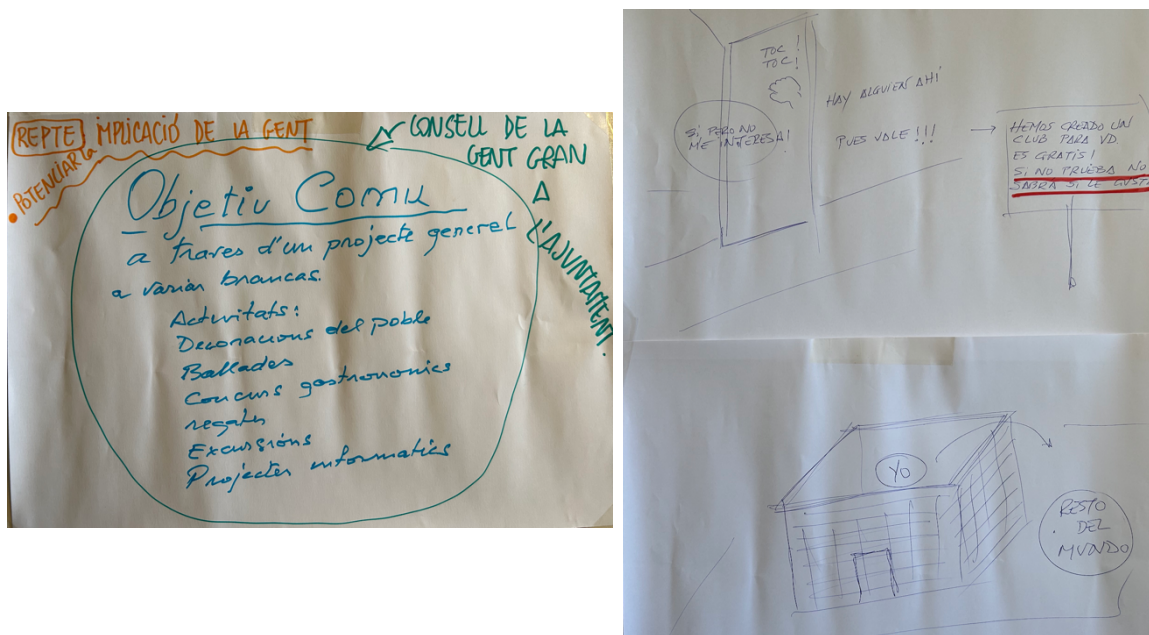 REPTE IMPLICACIÓ DE LA GENT
• POTENCIAR la
CONSELL DE LA
GENT GRAN
A
L'AJUNTAMENT.
Objetiu Comu
a traves d'un projecte general
a varian brancas.
Activitats:
Decoracions del poble
Ballades
Concurs gastronomics
regates
Excursións
Projectes informatics
TOC !
TOC !
HAY ALGUIEN AHÍ
SI PERO NO
ME INTERESA!
PUES VALE !!!
HEMOS CREADO UN
CLUB PARA VD.
ES GRATIS!
SI NO PRUEBA NO
SABRA SI LE GUSTA
YO
RESTO
DEL
MUNDO